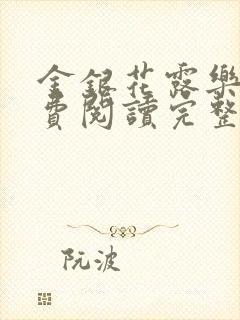 金銀花露樂
費閱讀完整
阮波